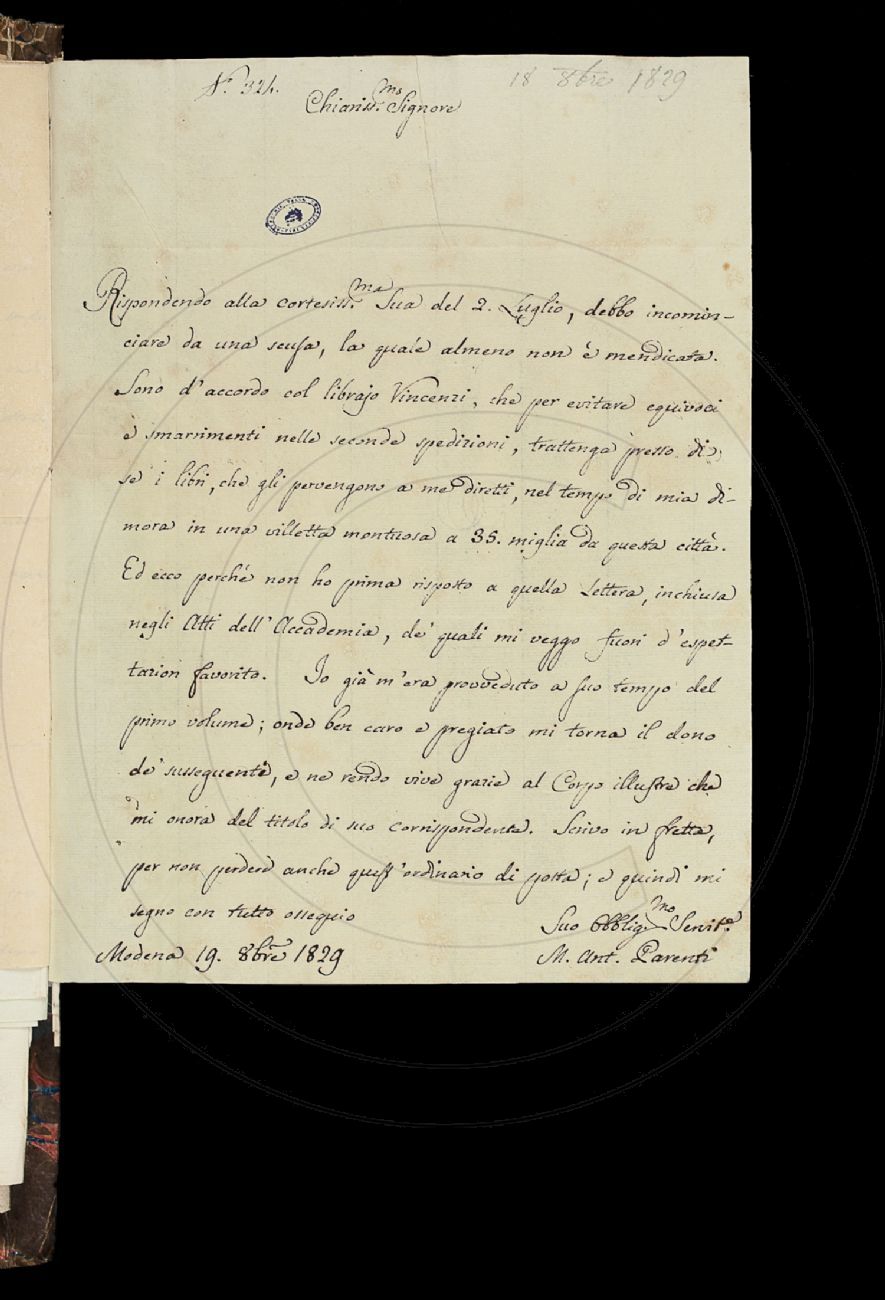 N.° 324.
18 8bre 1829
Chiariss.mo Signore
Rispondendo alla cortesiss.ma Sua del 2. Luglio, debbo incomin-
ciare da una scusa, la quale almeno non è mendicata.
Sono d'accordo col librajo Vincenzi, che per evitare equivoci
e smarrimenti nelle seconde spedizioni, trattenga presso di
se i libri, che gli pervengono a me diretti, nel tempo di mia di-
mora in una villetta montuosa a 35. miglia da questa città.
Ed ecco perché non ho prima risposto a quella Lettera, inchiusa
negli Atti dell'Accademia, de' quali mi veggo fuori d'espet-
tazion favorito. Io già m'era provveduto a suo tempo del
primo volume; onde ben caro e pregiato mi torna il dono
de' susseguenti, e ne rendo vive grazie al Corpo illustre che
mi onora del titolo di suo corrispondente. Scrivo in fretta,
per non perdere anche quest'ordinario di posta; e quindi mi
segno con tutto ossequio
Suo Obblig.mo Servit.e
Modena 19. 8bre 1829
M. Ant. Parenti